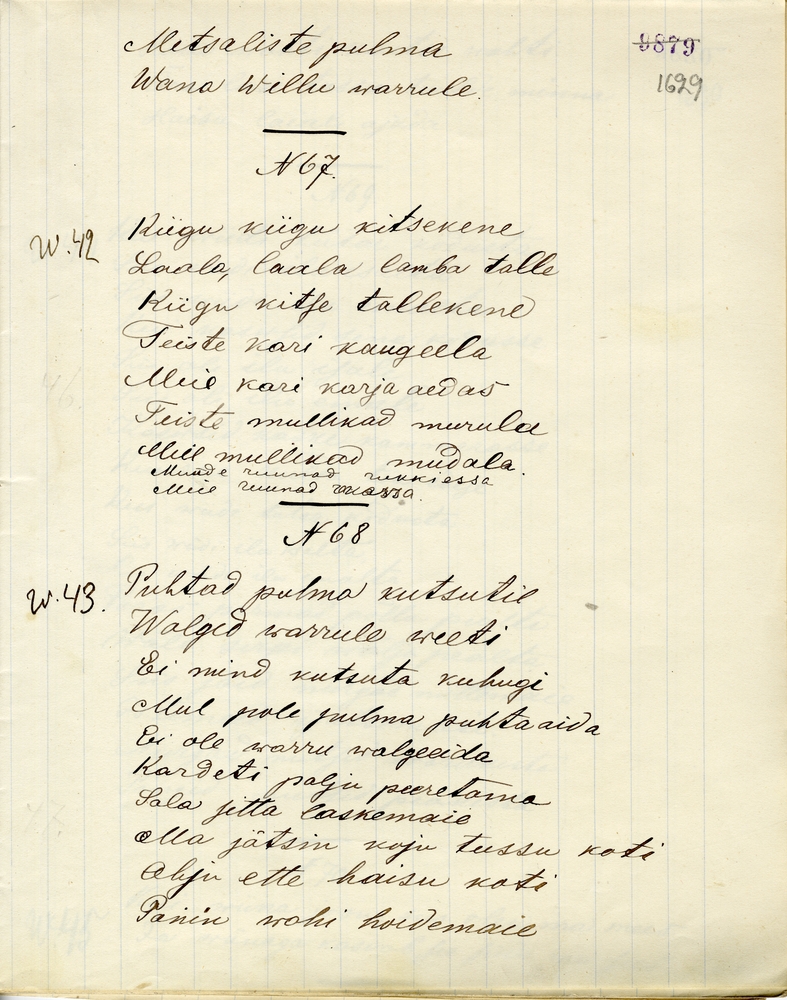 Metsaliste pulma
9879
Wana Willu warrule.
1629
N 67.
W. 42
Kiigu kiigu kitsekene
Laala, laala lamba talle
Kiigu kitse tallekene
Teiste kari kaugeela
Meie kari karja aedas
Teiste mullikad murula
Meie mullikad mudala.
Muude ruunad rukkiessa
Meie ruunad
N 68
W. 43.
Puhtad pulma kutsutie
Walged warrule weeti
Ei mind kutsuta kuhugi
Mul pole pulma puhtaaida
Ei ole warru walgeeida
Kardeti palju peeretama
Sala sitta laskemaie
Ma jätsin koju tussu koti
Ahju ette haisu koti
Panin wohi hoidemaie